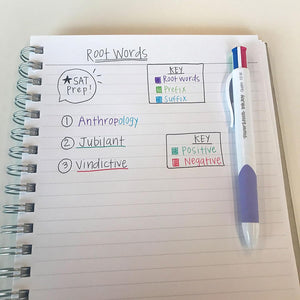 Root Words
★SAT Prep!
KEY
Root words
Prefix
Suffix
① Anthropology
② Jubilant
③ Vindictive
KEY
Positive
Negative